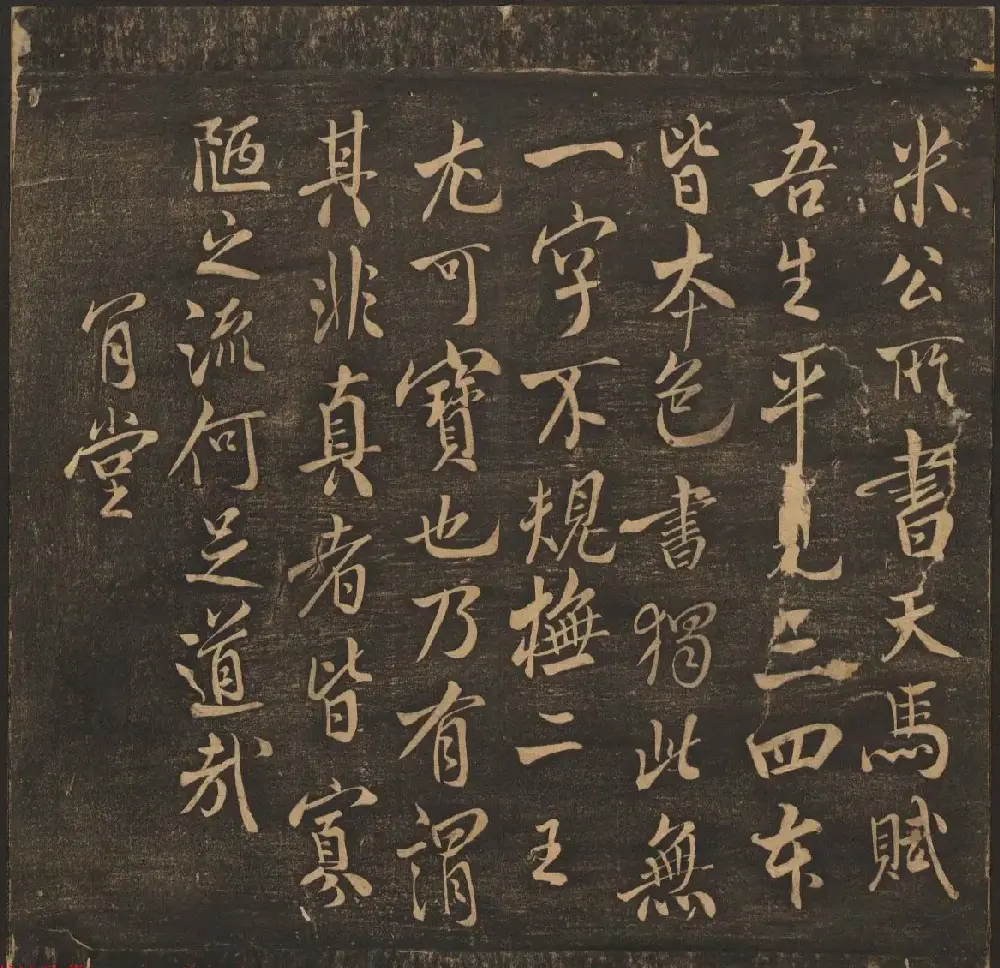 米公所書天馬賦
吾生平見三四本
皆本色書獨此無
一字不規橅二王
尤可寶也乃有謂
其非真者皆寡
陋之流何足道哉
肎堂